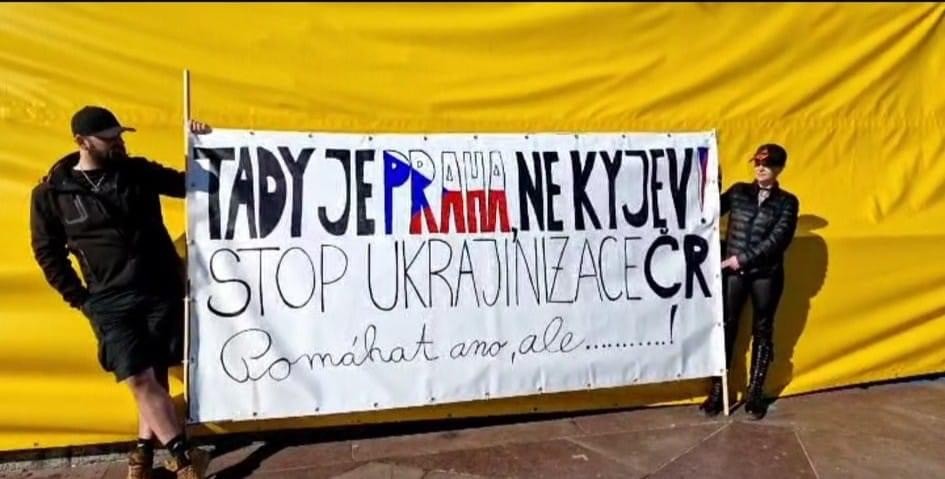 TADY JE PRAHA, NE KYJEV!
STOP UKRAJINIZACE ČR
Pomáhat ano, ale...........!